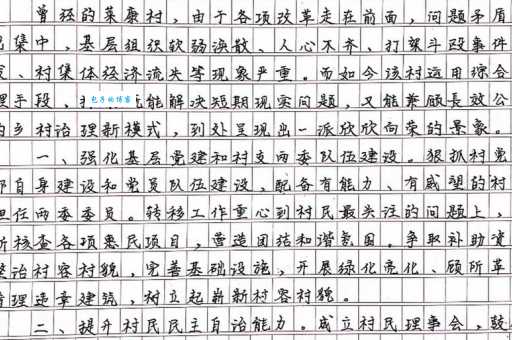 曾经的莱康村，由于各项改革走在前面，问题矛盾
集中，基层组织软弱涣散、人心不齐、打架斗殴事件
、村集体经济流失等现象严重。而如今该村运用综合
手段、能解决短期现实问题，又能兼顾长效公
乡村治理新模式，到处呈现出一派欣欣向荣的景象。
一、强化基层党建和村支两委队伍建设。狠抓村党
部自身建设和党员队伍建设，配备有能力、有威望的村
担任两委委员。转移工作重心到村民最关注的问题上，
核查各项惠民项目，营造团结和谐氛围。争取补助资
整治村容村貌，完善基础设施，开展绿化亮化、顾所革
管理违章建筑，树立起崭新村容村貌。
二、提升村民民主自治能力。成立村民理事会，鼓
包方的博客